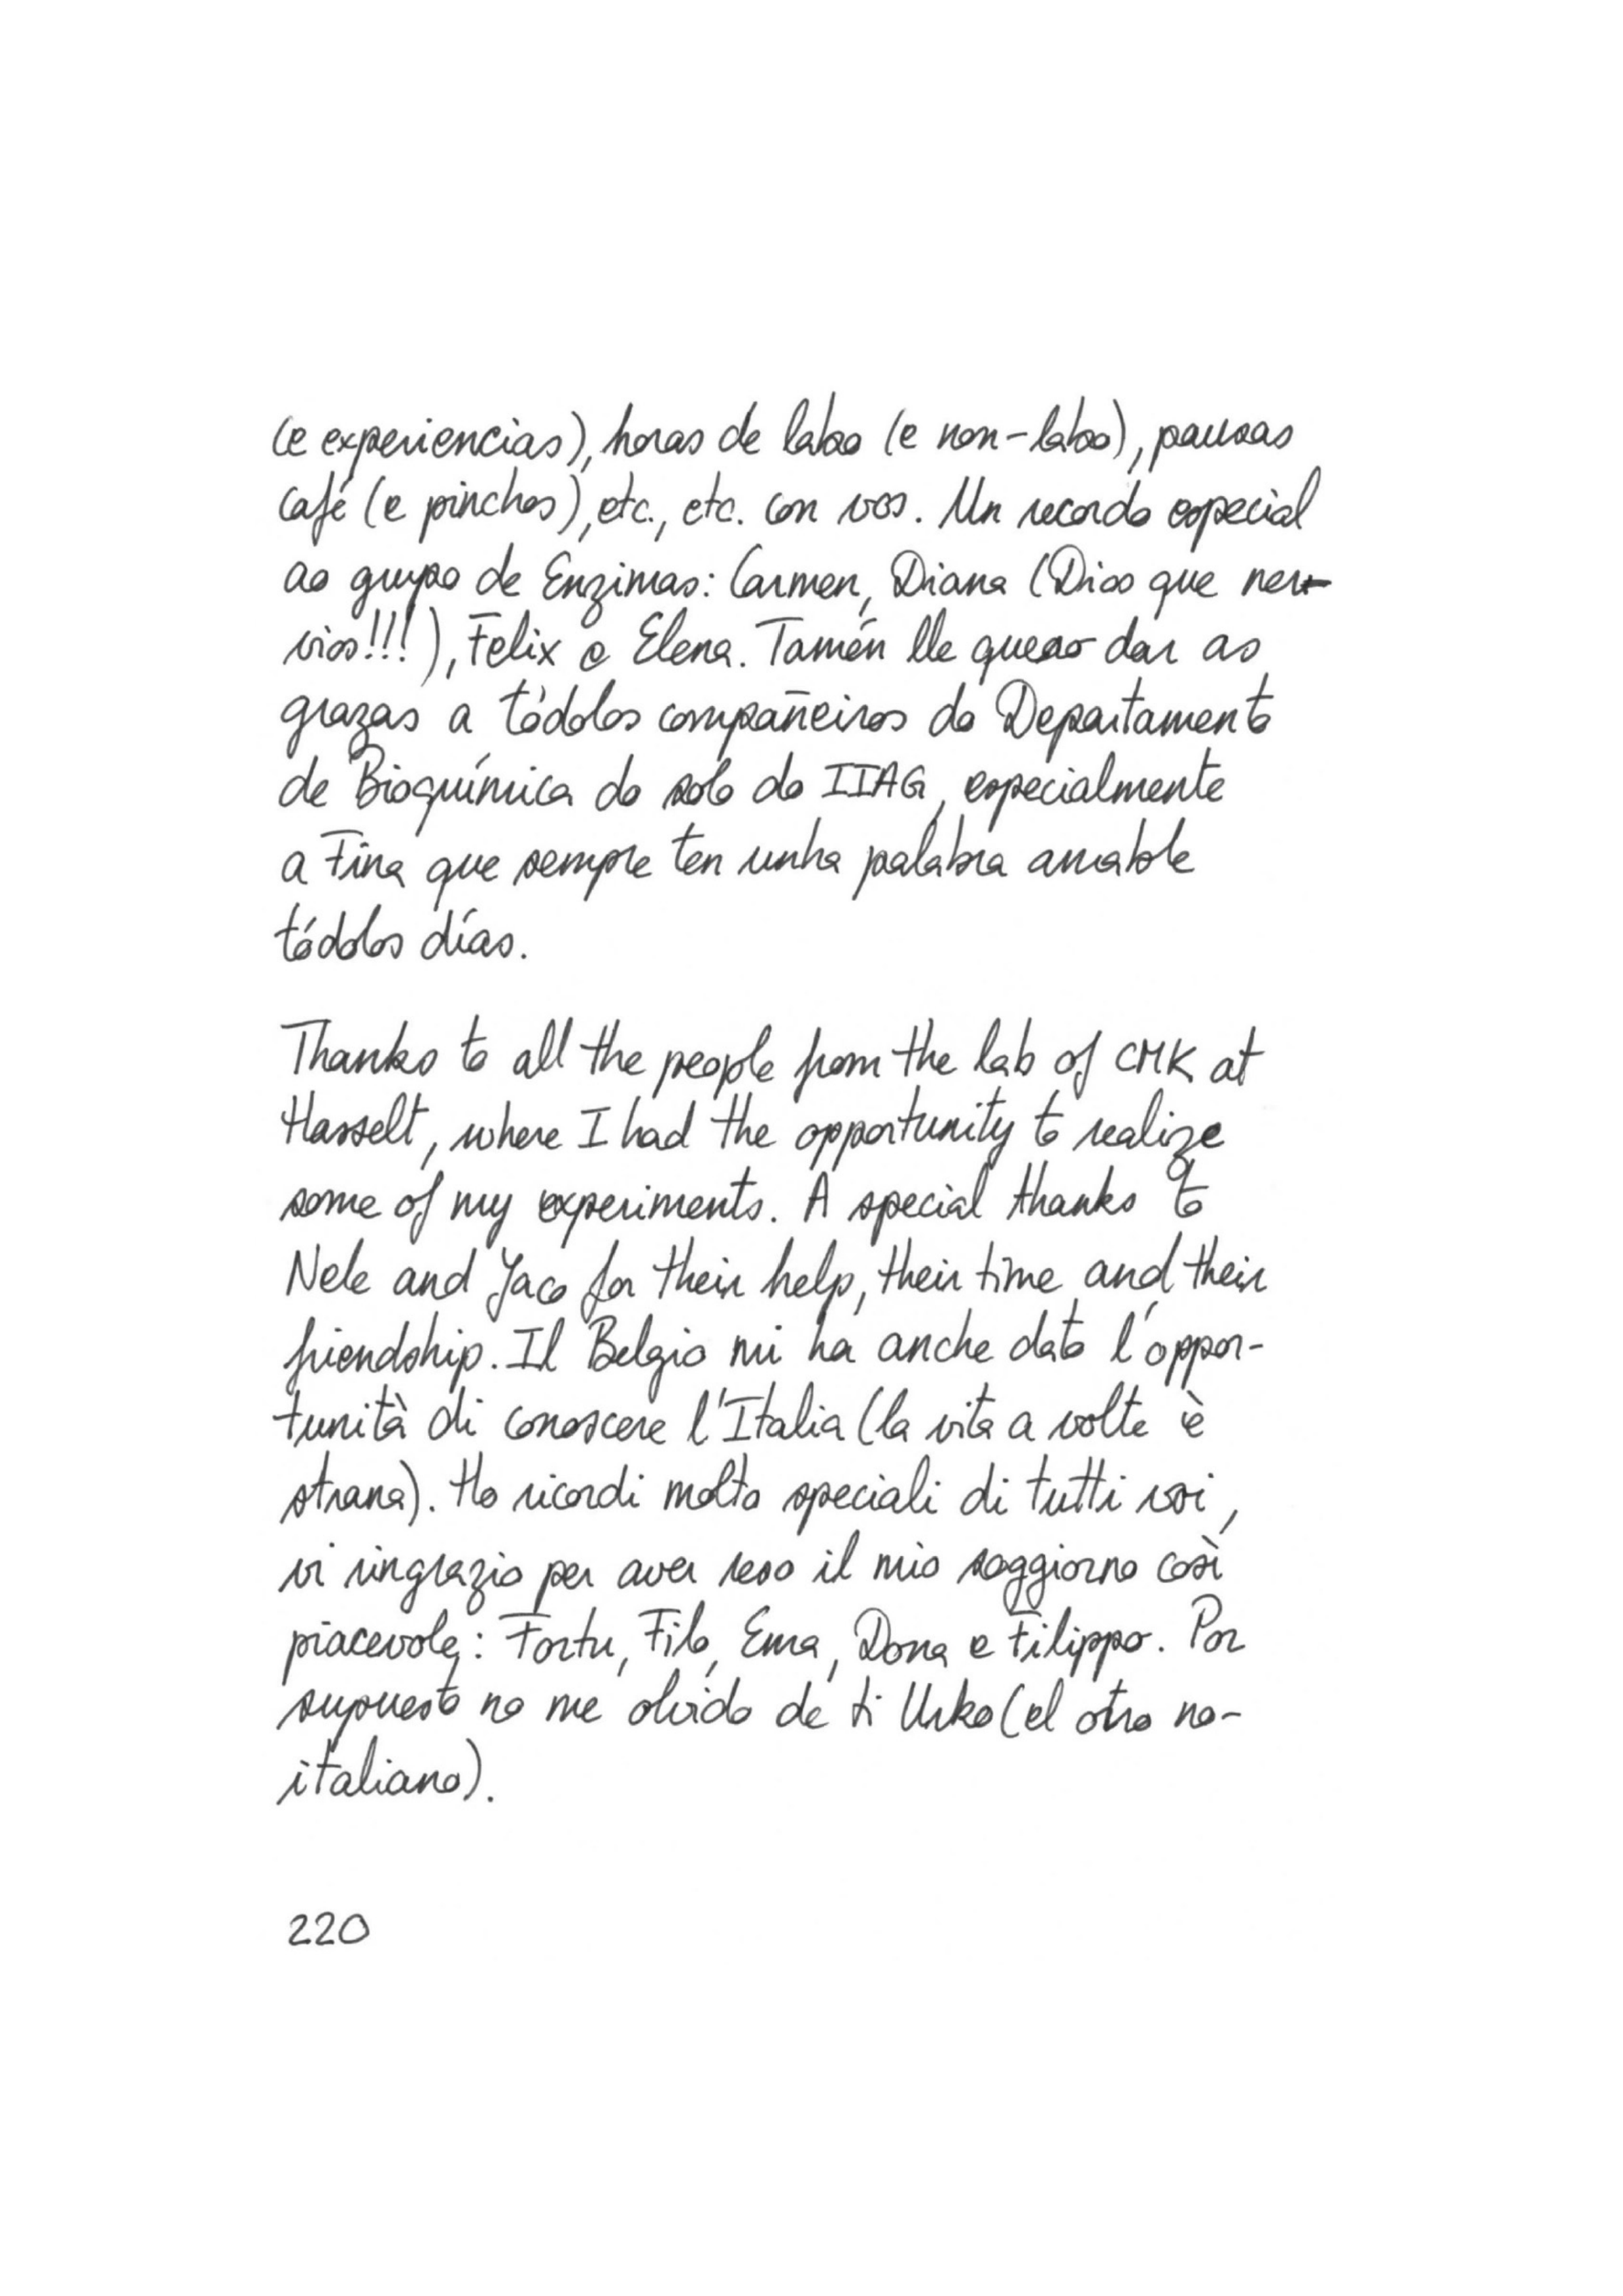 (e experiencias), horas de labo (e non-labo), pausas
café (e pinchos), etc., etc. con vos. Un recordo especial
ao grupo de Enzimas: Carmen, Diana (Dios que ner-
vios!!!), Felix e Elena. Tamén lle quero dar as
grazas a tódolos compañeiros do Departamento
de Bioquímica do solo do IIAG, especialmente
a Fina que sempre ten unha palabra amable
tódolos días.
Thanks to all the people from the lab of CMK at
Hasselt, where I had the opportunity to realize
some of my experiments. A special thanks to
Nele and Jaco for their help, their time and their
friendship. Il Belgio mi ha anche dato l'oppor-
tunità di conoscere l'Italia (la vita a volte è
strana). Ho ricordi molto speciali di tutti voi,
vi ringrazio per aver reso il mio soggiorno così
piacevole: Fortu, Filo, Ema, Dona e Filippo. Por
supuesto no me olvido de ti Urko (el otro no-
italiano).
220